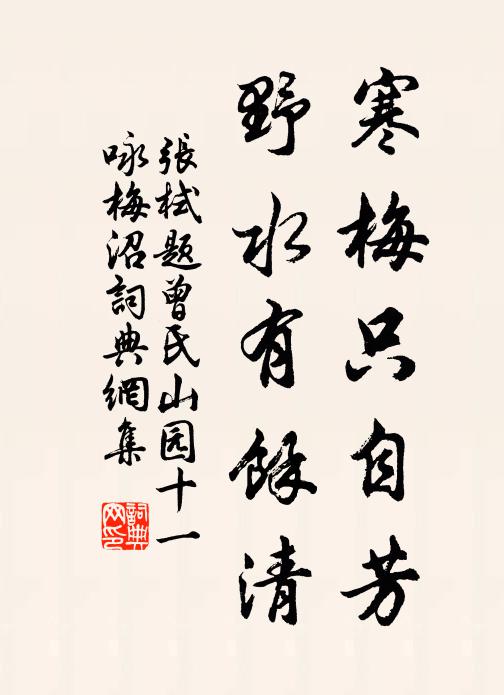 寒梅只自芳
野水有餘清
張栻题曾氏山园十一
咏梅沼詞典網集
詞典
网印